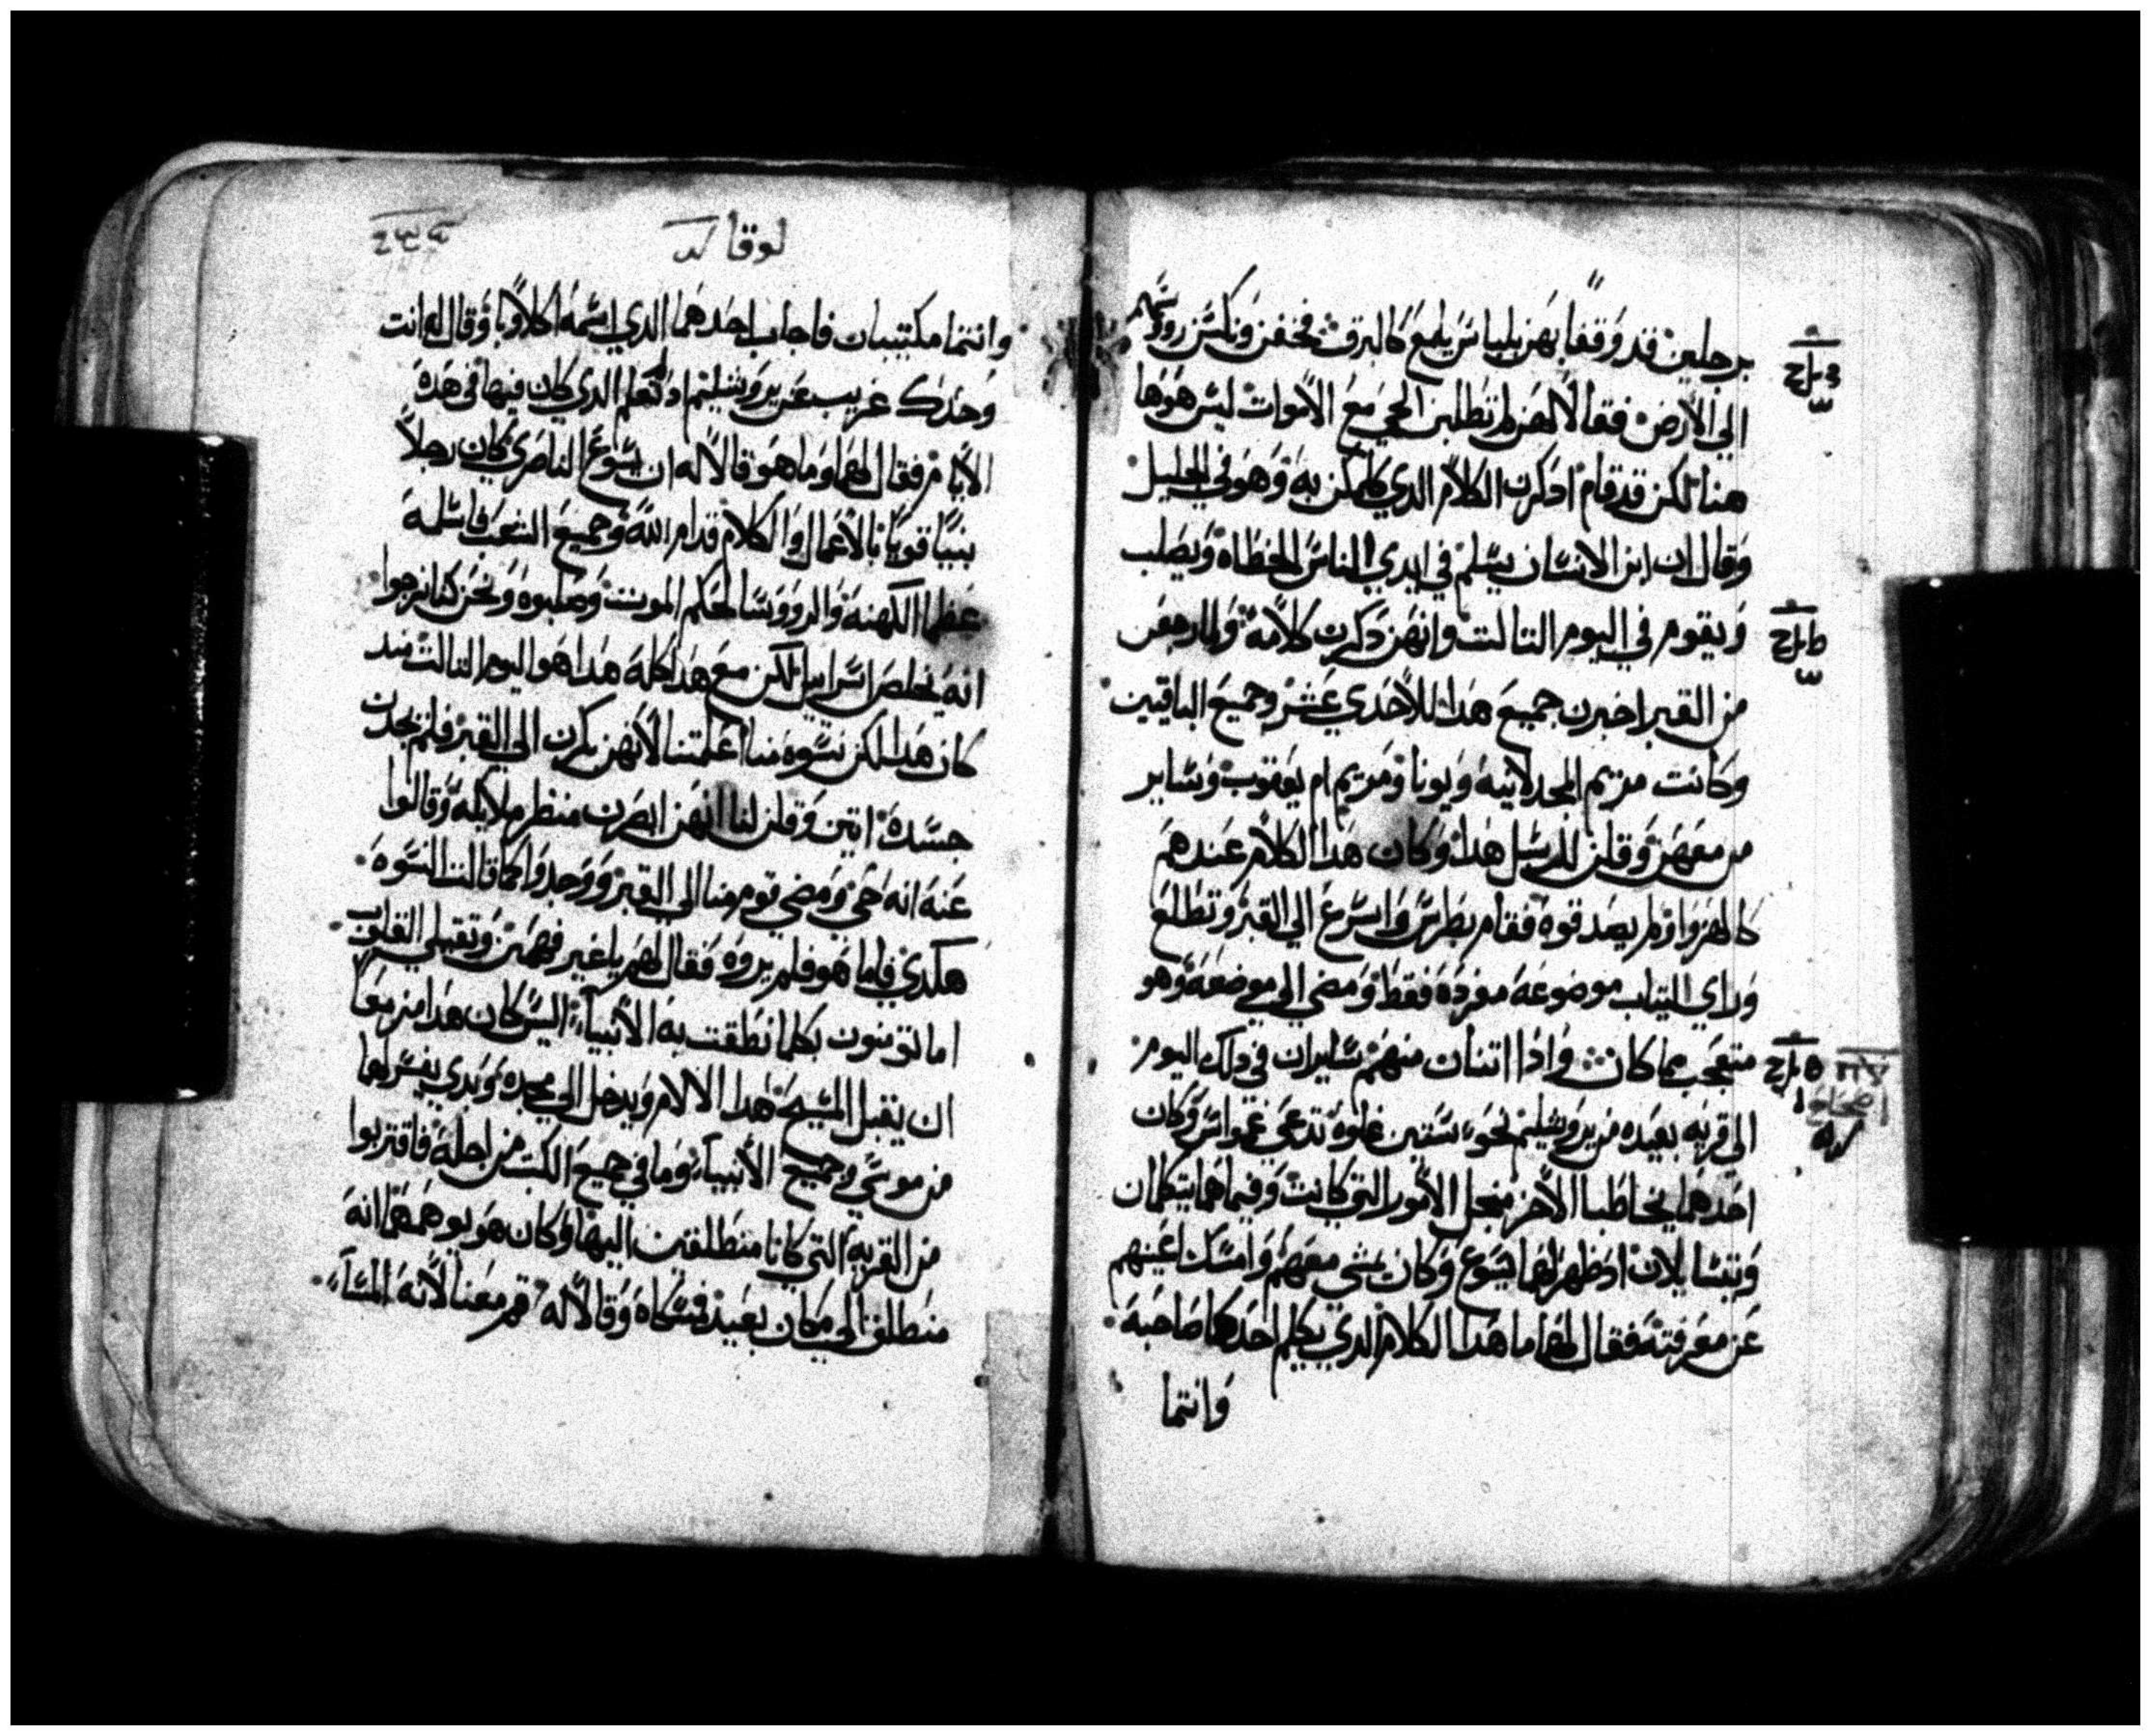 برجلين قد وقفا بهن بلباس يلمع كالبرق فخفن ونكسن رووسهم
الي الأرض فقالا لهن لم تطلبن الحي مع الأموات ليس هو ها
هنا لكن قد قام اذكرن الكلام الدي كلمكن به وهو في الجليل
وقال ان ابن الانسان يسلم في ايدي الناس الخطاه ويصلب
ويقوم في اليوم التالت وانهن دكرن كلامه ولما رجعن
من القبر اخبرن جميع هدا للأحدي عشر وجميع الباقيين
وكانت مريم المجدلانيه ويونا ومريم ام يعقوب وساير
من معهن وقلن للرسل هدا وكان هدا الكلام عندهم
كالهزو ولم يصدقوه فقام بطرس واسرع الي القبر وتطلع
وراي التياب موضوعه مفرده فقط ومضي الي موضعه وهو
متعجب مما كان واذا اتنان منهم سايران في دلك اليوم
الي قريه بعيده من يروشليم نحو ستين غلوه تدعي عمواس وكان
احدهما يخاطب الأخر منجل الأمور التي كانت وفيما هما يتكلمان
ويتسايلان اد ظهر لهما يسوع وكان يمشي معهم وامسك اعينهم
عن معرفته فقال لهما ما هدا الكلام الدي يكلم احدكما صاحبه
وانتما
لوقا كد
وانتما مكتيبان فاجاب احدهما الدي اسمه اكلاوبا وقال له انت
وحدك غريب عن يروشليم اد لم تعلم الدي كان فيها في هده
الأيام فقال لهما وما هو قالا له ان يسوع الناصري كان رجلاً
نبيًا قويًا بالأعمال والكلام قدام الله وجميع الشعب فاسلمه
عظما الكهنه والرووسا لحكم الموت وصلبوه ونحن كنا نرجوا
انه يخلص اسراييل لكن مع هدا كله هدا هو اليوم التالت مند
كان هدا لكن نسوه منا اعلمتنا لأنهن بكرن الي القبر فلم يجدن
جسده اتين وقلن لنا انهن ابصرن منظر ملايكه وقالوا
عنه انه حي ومضي قوم منا الي القبر ووجدوا كما قالت النسوه
هكدي فاما هو فلم يروه فقال لهم يا غير فهمين وتقيلي القلوب
اما تومنون بكلما نطقت به الأنبياء اليس كان هدا مزمعا
ان يقبل المسيح هدا الالام ويدخل الي مجده وبدي يفسر لهما
من موسي وجميع الأنبياء وما في جميع الكتب من اجله فاقتربوا
من القريه التي كانا منطلقين اليها وكان هو يوهمهما انه
منطلق الي مكان بعيد فمسكاه وقالا له قم معنا لأنه المساء